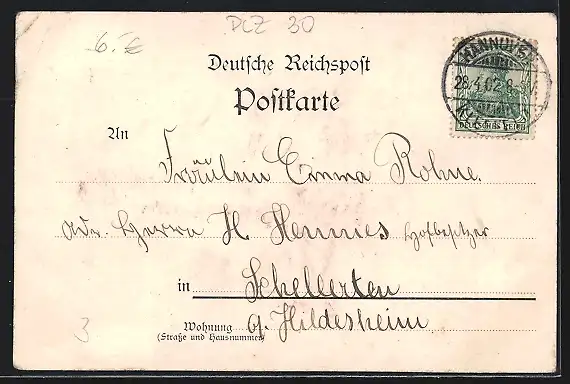 PLZ 30
6.-€
Deutsche Reichspost
Postkarte
HANNOVER
28.4.02.8-
DEUTSCHES REICH
An
Fräulein Emma Rohne.
Adr. Herrn H. Hennies Hofbesitzer
in Schellerten
Wohnung b/ Hildesheim
(Straße und Hausnummer)
3